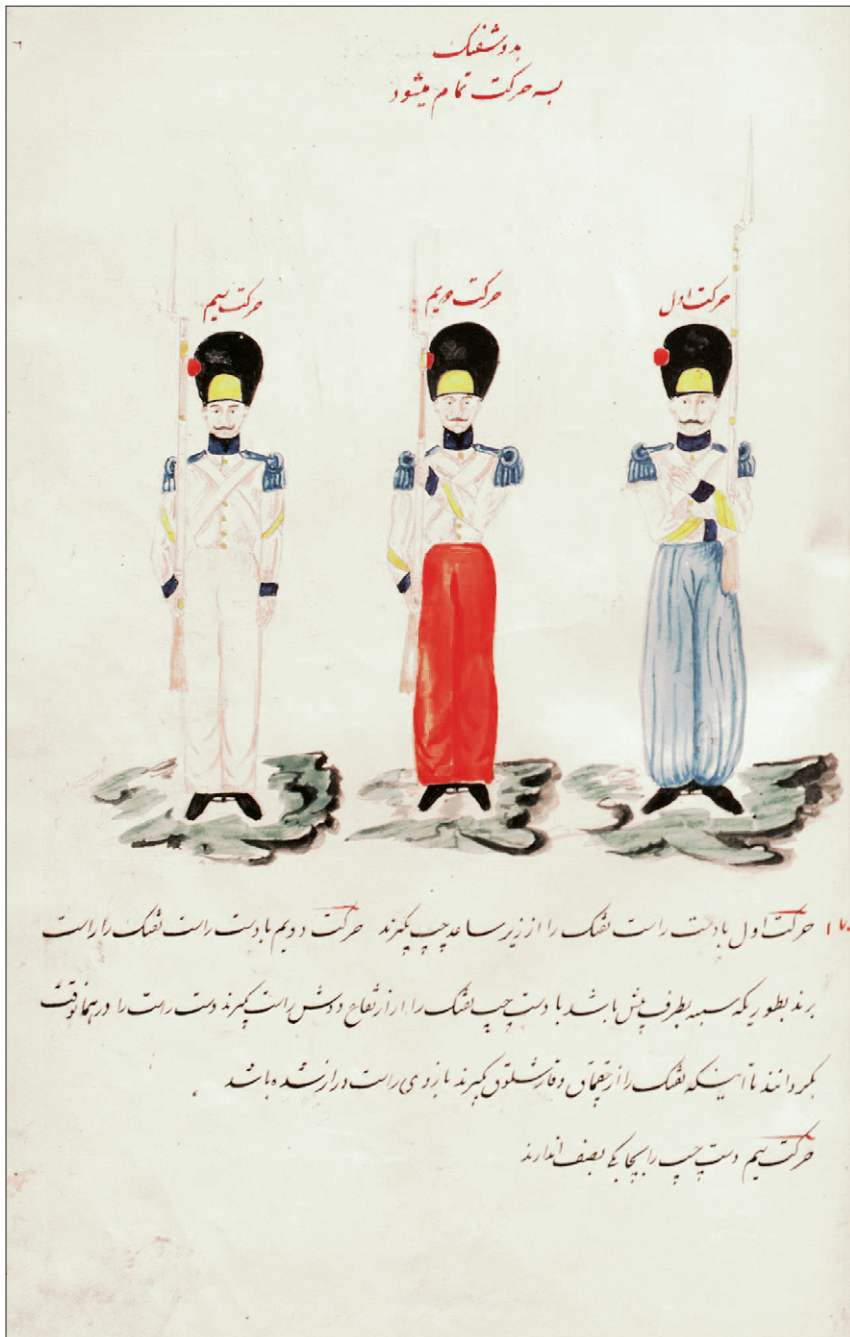 بدوشفنک
بسه حرکت تمام میشود
حرکت اول
حرکت دویم
حرکت سیم
حرکت اول با دست راست تفنک را از زیر ساعد چپ بکیرند حرکت دویم با دست راست تفنک را راست
برند بطوریکه سمبه بطرف پیش باشد با دست چپ تفنک را از ارتفاع دوش راست کیرند دست راست را در همانوقت
بکردانند تا اینکه تفنک را از چقماق و کیرند بازوی راست دراز شده باشد
حرکت سیم دست چپ را بیجابکی بصف اندازند